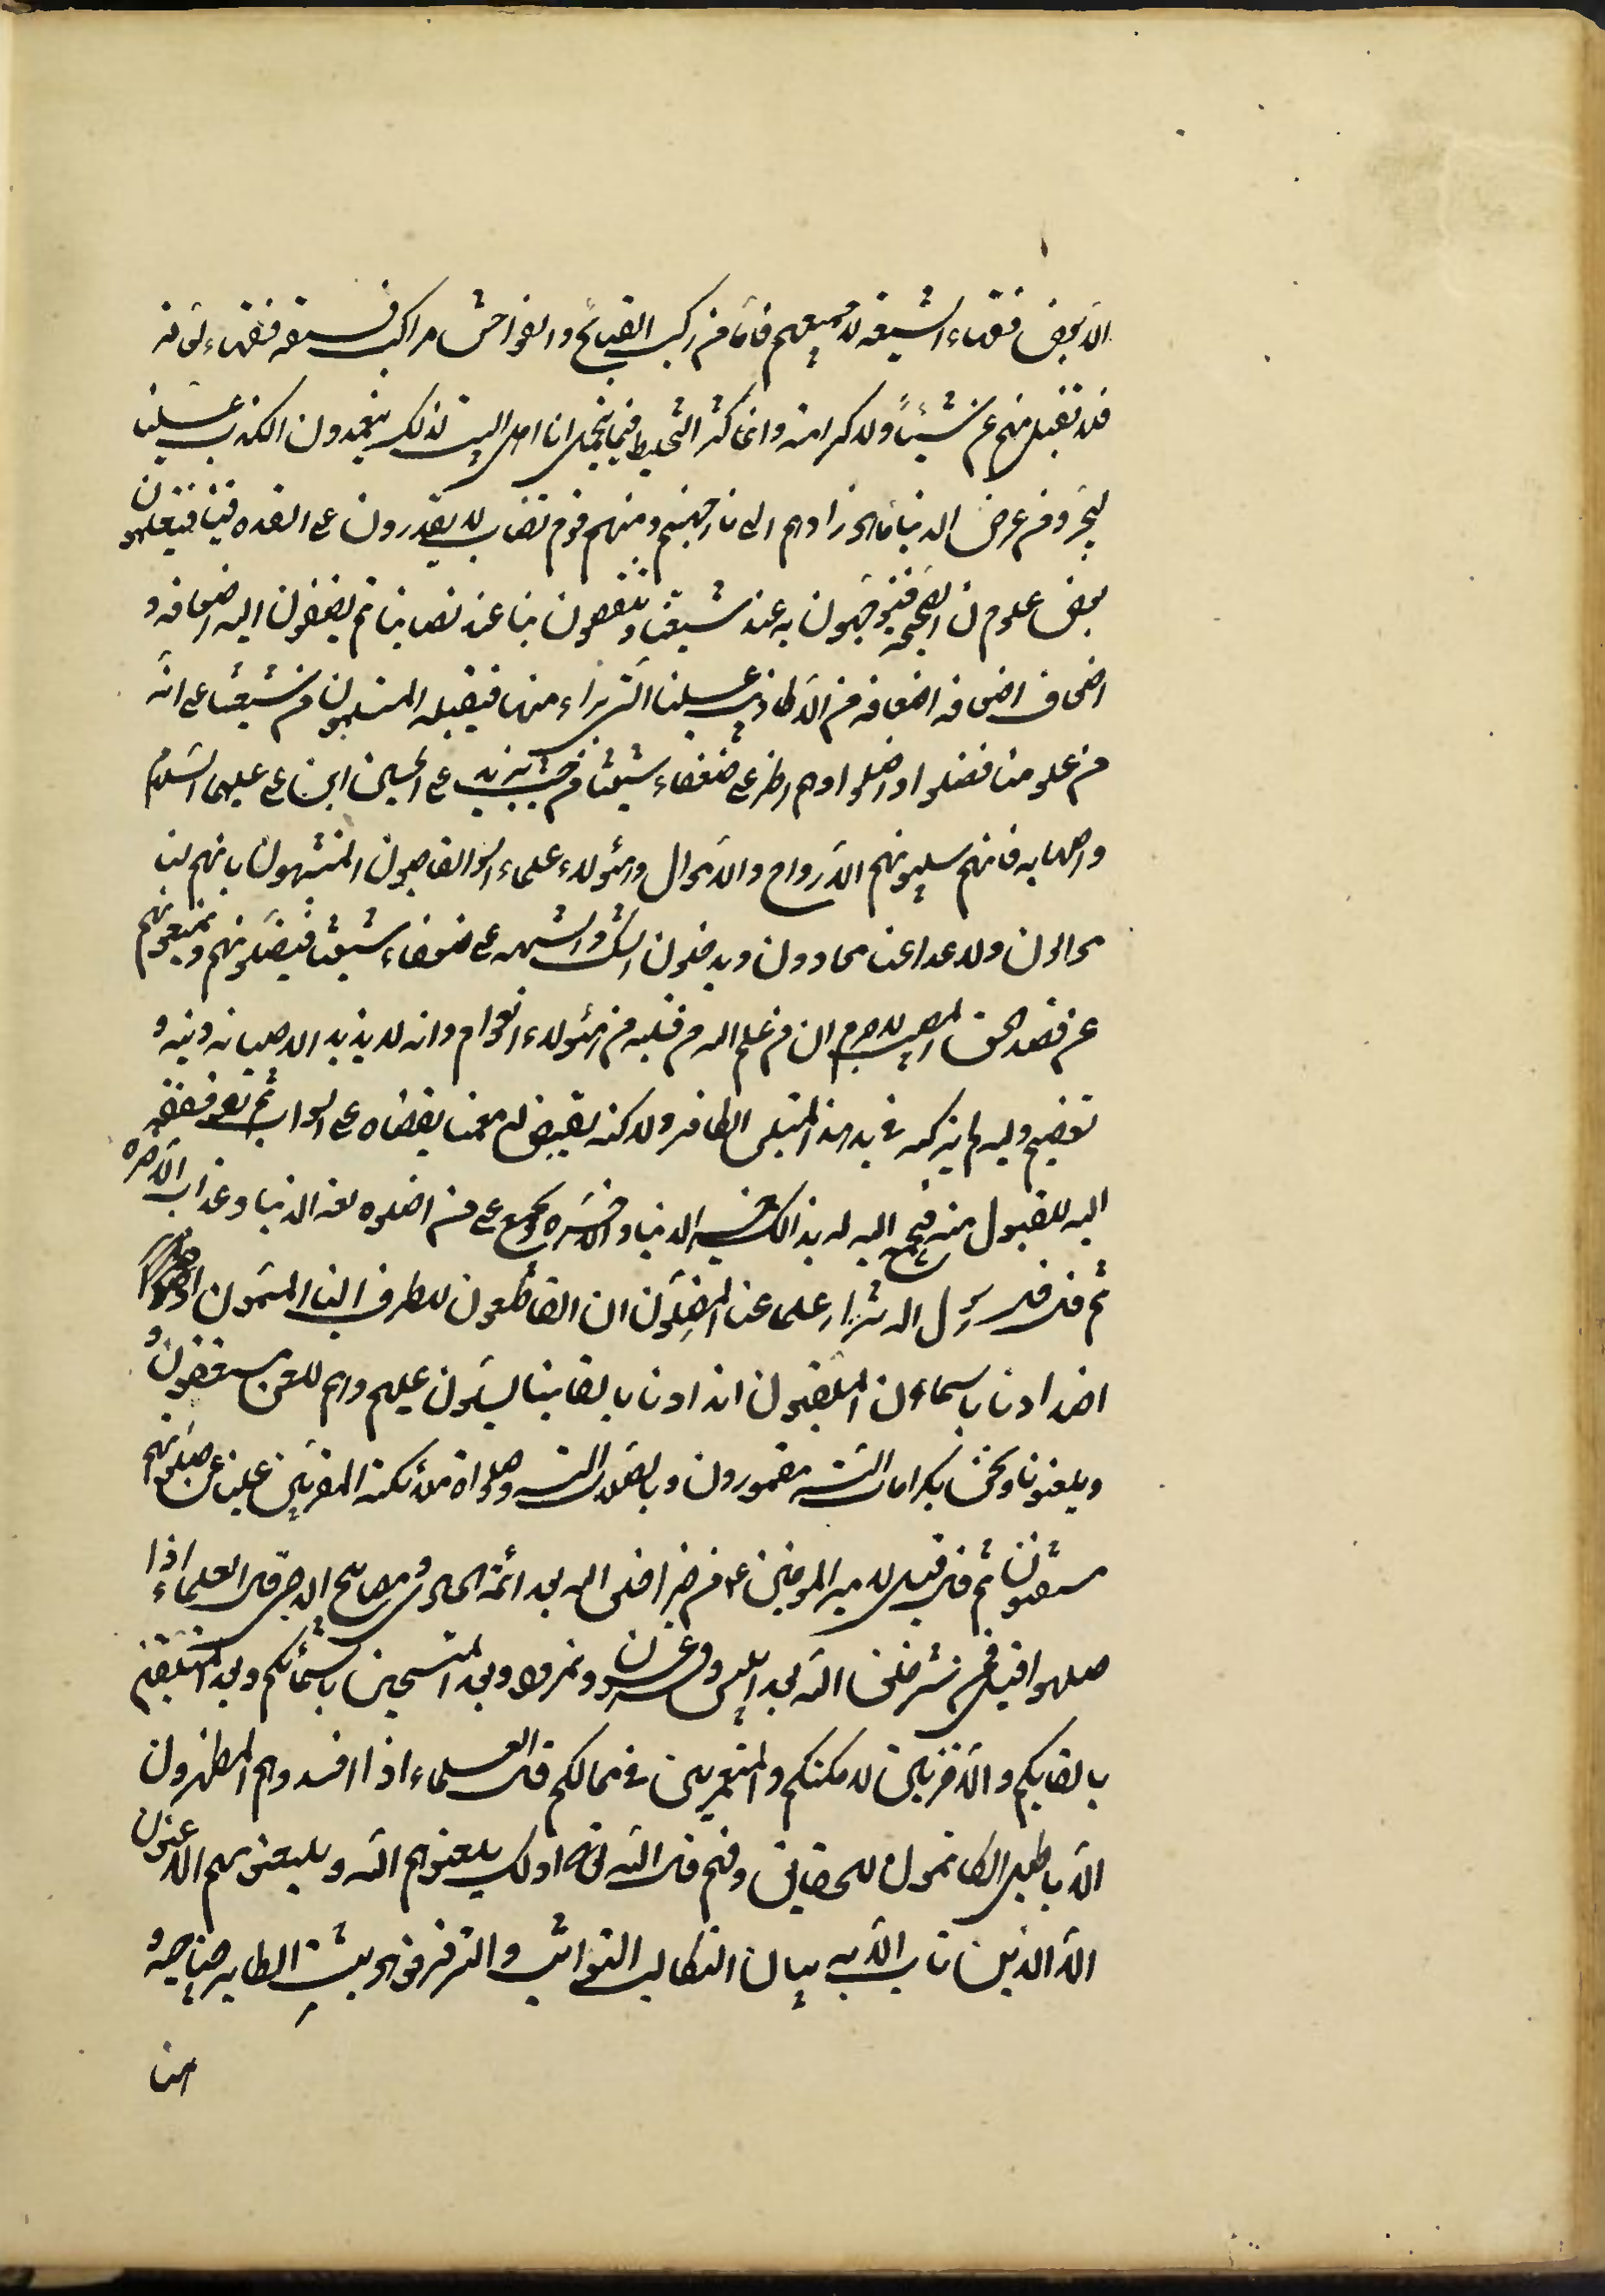 الا بعض فقهاء الشيعه لا جميعهم فاما من ركب القبائح والفواحش مراكب فسقه فقهاء العامه
فلا تقبلو منهم عن شيئاً ولا كرامه وانما كثر التخليط فيما يتحمل انا اهل البيت لذلك يتعمدون الكذب علينا
ليجروا من عرض الدنيا ما هو زادهم الى نار جهنم ومنهم قوم نصاب لا يقدرون على القدح فينا فيتعلمون
بعض علومنا الصحيحه فيتوجهون به عند شيعتنا وينتقصون بنا عند نصابنا ثم يضيفون اليه اضعافه و
اضعاف اضعافه اضعافه من الاكاذيب علينا التي نحن براء منها فيقبله المستسلمون من شيعتنا على انه
من علومنا فضلوا واضلوا وهم اضر على ضعفاء شيعتنا من جيش يزيد على الحسين ابن علي عليهما السلام
واصحابه فانهم يسلبونهم الارواح والاموال وهؤلاء علماء السوء الناصبون المتشبهون بانهم لنا
موالون ولاعدائنا معادون ويدخلون الشك والشبهه على ضعفاء شيعتنا فيضلونهم ويمنعونهم
عن قصد الحق المصيب لا جرم ان من علم الله من قلبه من هؤلاء العوام وانه لا يريد الا صيانه دينه و
تعظيم وليه لم يتركه في يد هذا المتلبس الكافر ولاكنه يقيض له مؤمنا يقف به على الصواب ثم يوفقه
اليه للقبول منه فيجمع اليه له بذالك خير الدنيا والاخره ويجمع على من اضلوه لعن الدنيا وعذاب الاخره
ثم قال قال رسول الله شرار علمائنا المضلون عنا القاطعون للطرق الينا المسمون
اضدادنا باسمائنا الملقبون اندادنا بالقابنا يصلون عليهم وهم للعن مستحقون و
ويلعنونا ونحن بكرامات الله مغمورون وبصلوات الله وصلواة ملائكته المقربين علينا عن صلوتهم
مستغنون ثم قال قيل لامير المؤمنين ع من خير خلق الله بعد ائمة الهدى ومصابيح الدجى قال العلماء اذا
صلحوا قيل فمن شر خلق الله بعد ابليس وفرعون ونمرود وبعد المتسمين باسمائكم وبعد المتلقبين
بالقابكم والاخذين لامكنتكم والمتامرين في ممالككم قال العلماء اذا افسدوا هم المظهرون
الاباطيل الكاتمون للحقايق وفيهم قال الله تعالى اولئك يلعنهم الله ويلعنهم اللاعنون
الا الذين تابوا الآيه بيان التكالب التواثب والترفرف هو بسط الطاير جناحيه و
هنا